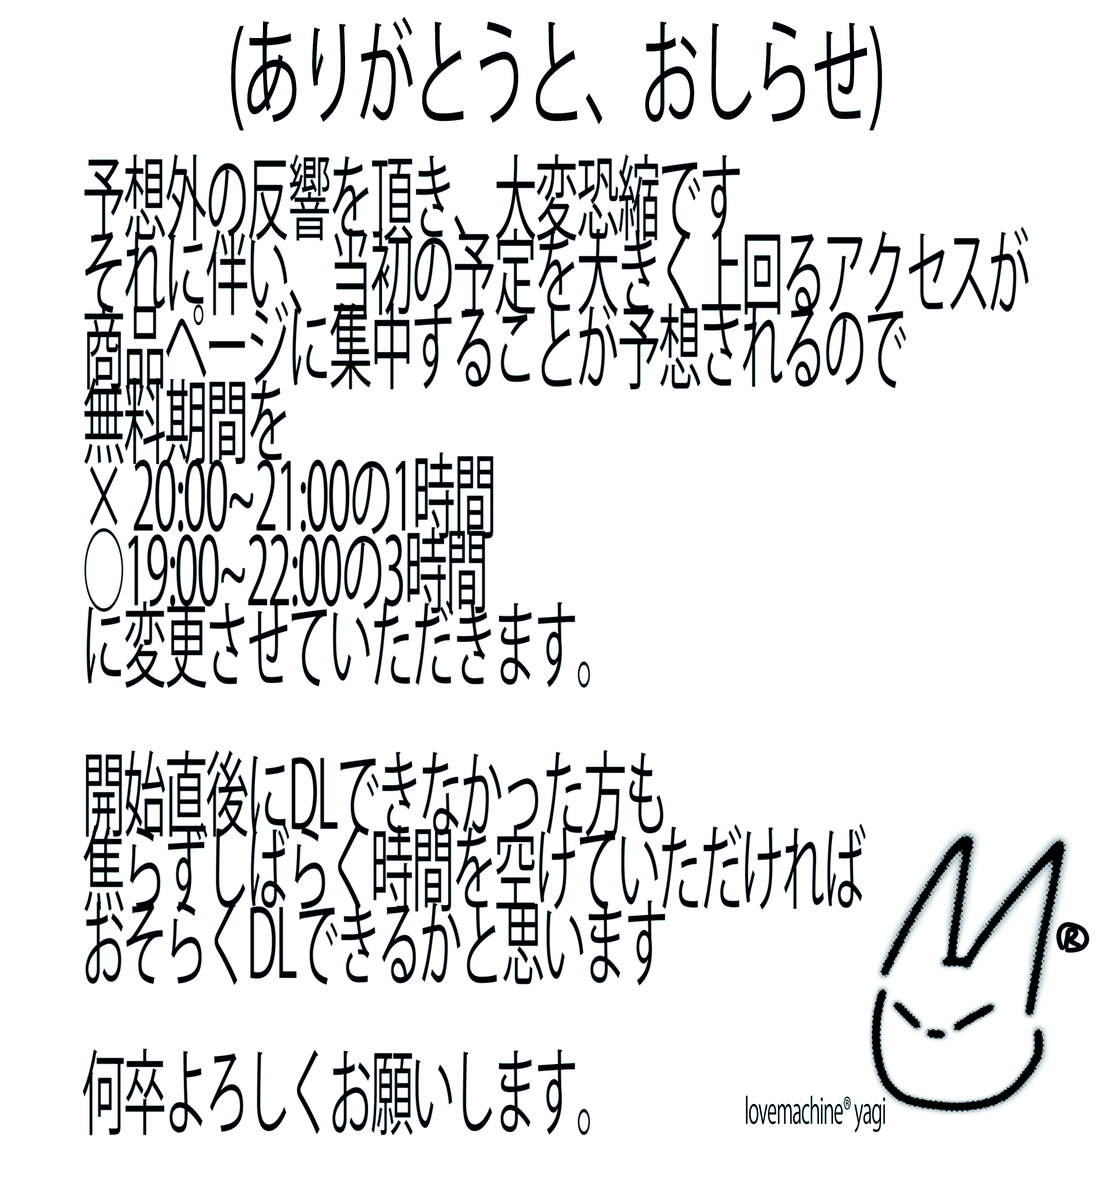 (ありがとうと、おしらせ)
予想外の反響を頂き、大変恐縮です
それに伴い、当初の予定を大きく上回るアクセスが
商品ページに集中することが予想されるので
無料期間を
× 20:00~21:00の1時間
○19:00~22:00の3時間
に変更させていただきます。
開始直後にDLできなかった方も
焦らずしばらく時間を空けていただければ
おそらくDLできるかと思います
何卒よろしくお願いします。
®
lovemachine® yagi